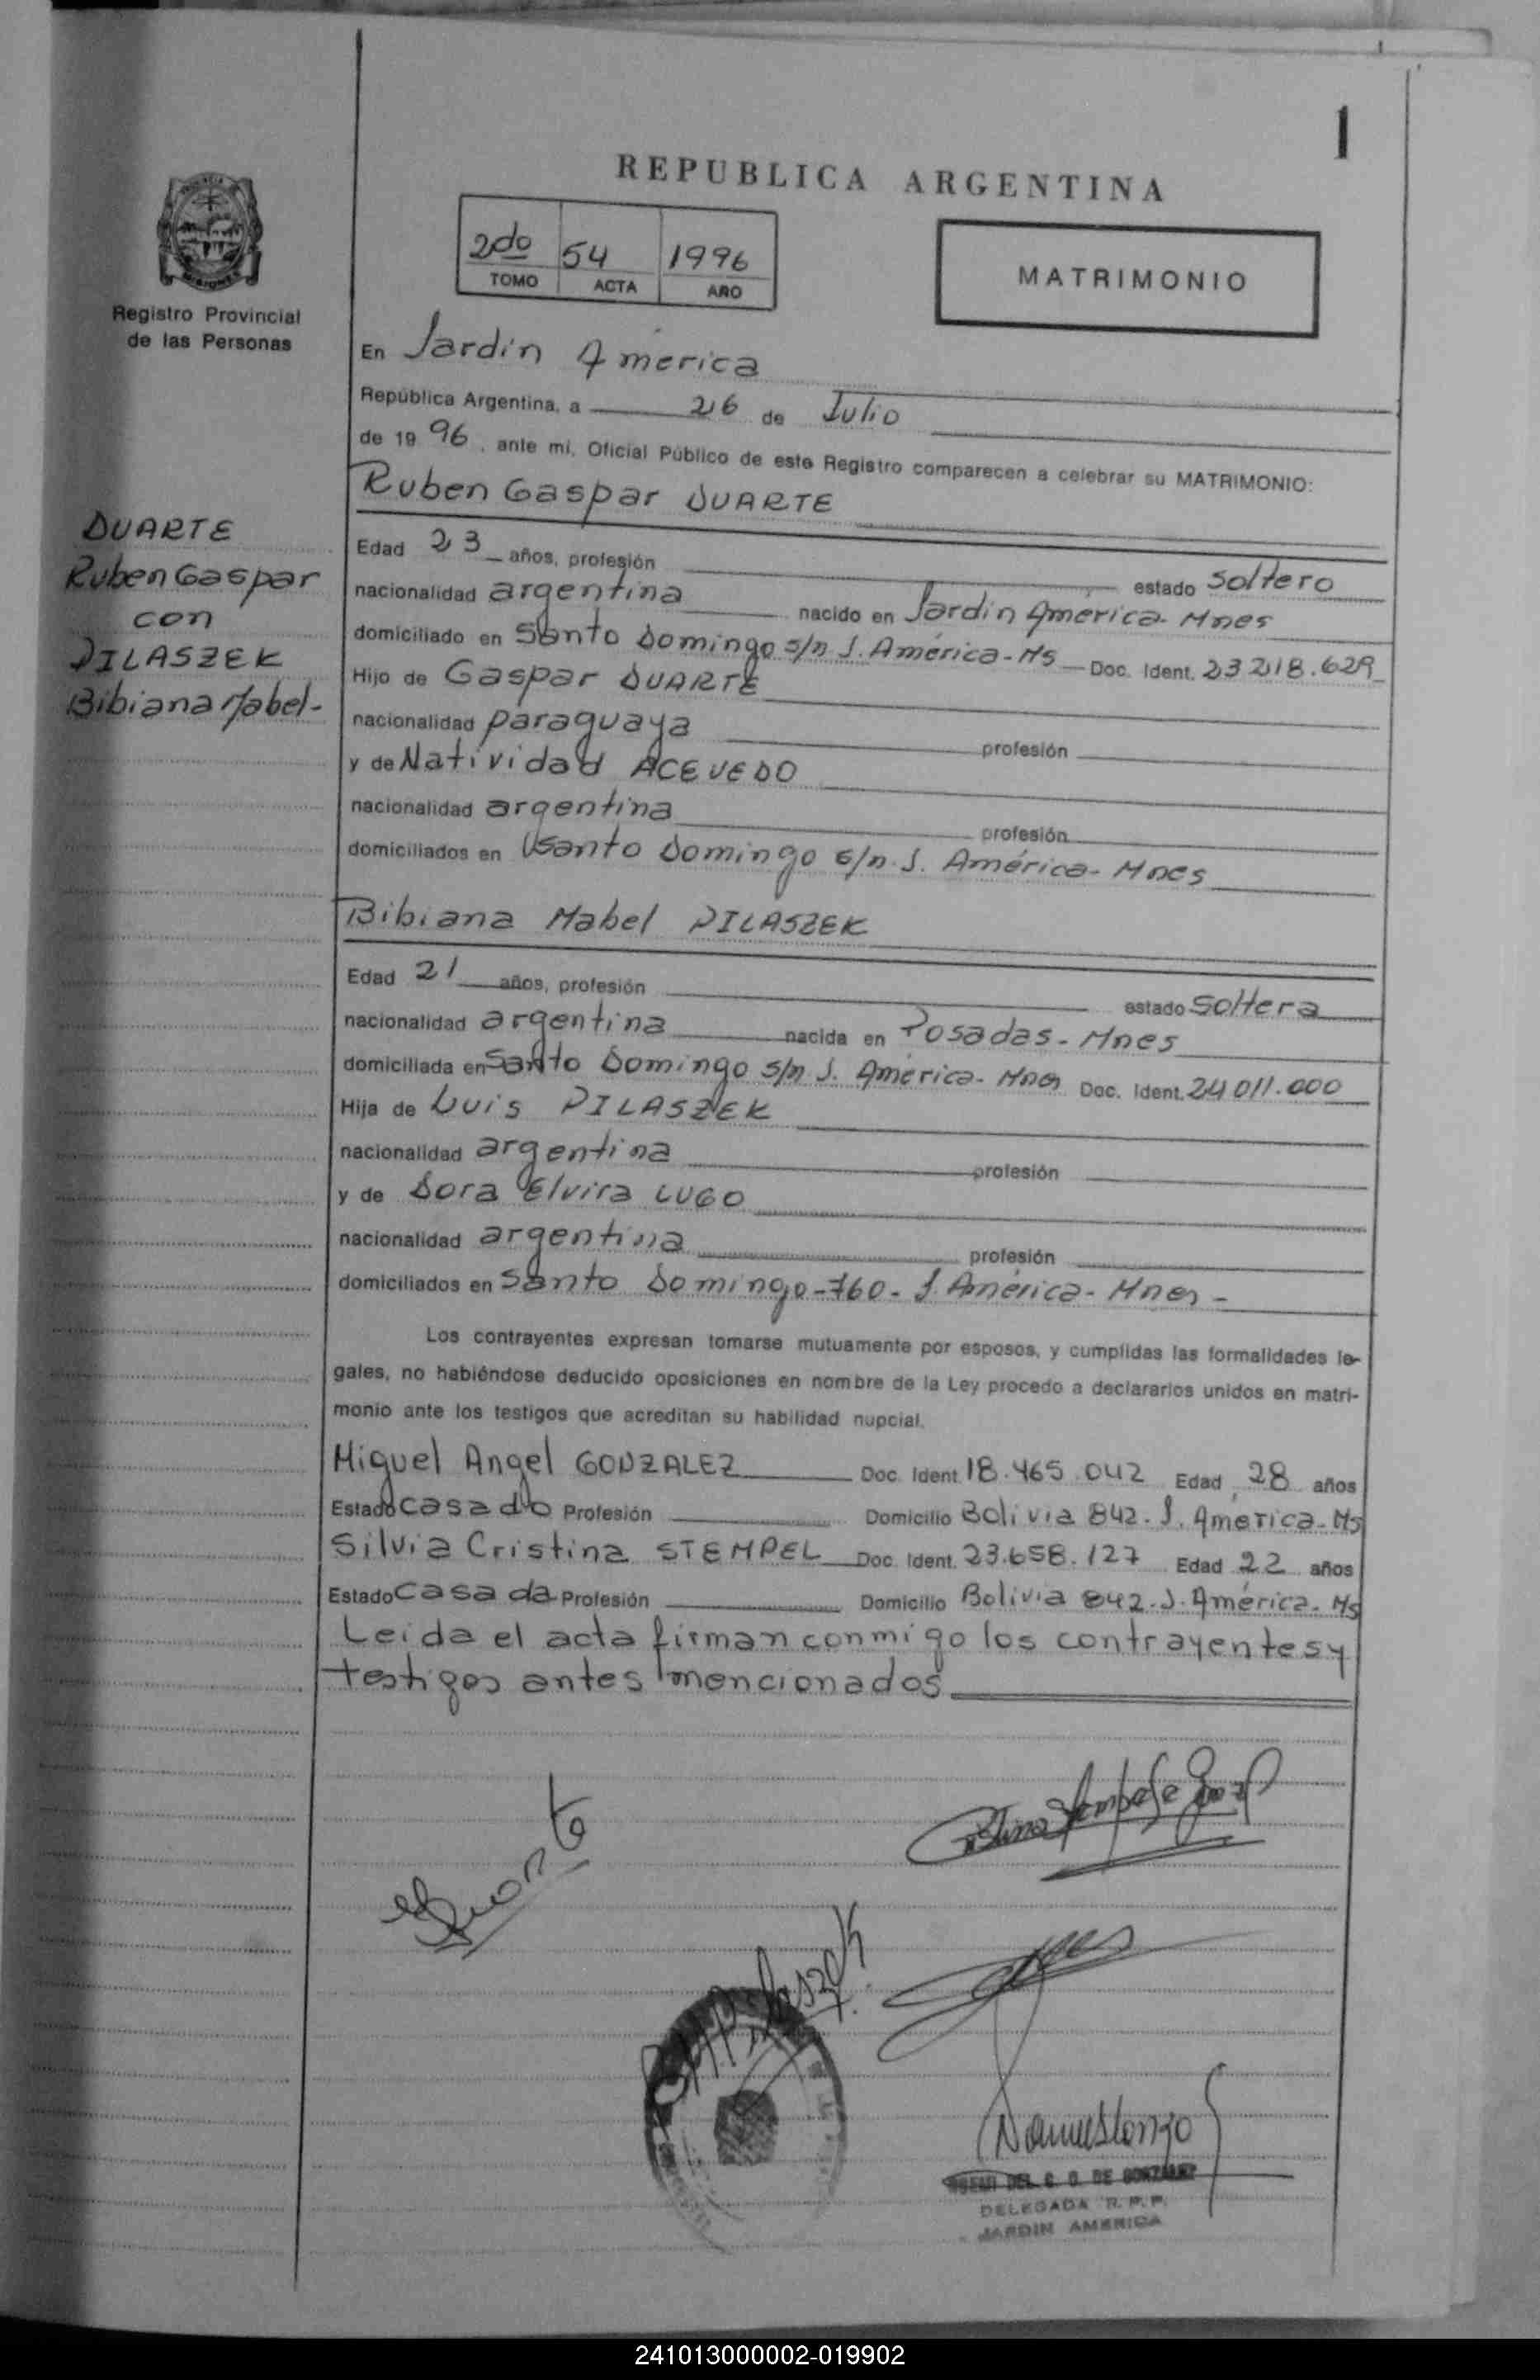 1
REPUBLICA ARGENTINA
2do 54 1996
TOMO ACTA AÑO
MATRIMONIO
Registro Provincial
de las Personas
En Jardín América
República Argentina, a 26 de Julio
de 19 96, ante mi, Oficial Público de este Registro comparecen a celebrar su MATRIMONIO:
Ruben Gaspar DUARTE
DUARTE
Ruben Gaspar
con
PILASZEK
Bibiana Mabel-
Edad 23 años, profesión estado soltero
nacionalidad argentina nacido en Jardín América- Mnes
domiciliado en Santo Domingo s/n J. América-Ms Doc. Ident. 23 218.629
Hijo de Gaspar DUARTE
nacionalidad paraguaya profesión
y de Natividad ACEVEDO
nacionalidad argentina profesión
domiciliados en Santo Domingo s/n. J. América- Mnes
Bibiana Mabel PILASZEK
Edad 21 años, profesión estado soltera
nacionalidad argentina nacida en Posadas- Mnes
domiciliada en Santo Domingo s/n J. América- Mnes Doc. Ident. 24 011.000
Hija de Luis PILASZEK
nacionalidad argentina profesión
y de Dora Elvira LUGO
nacionalidad argentina profesión
domiciliados en Santo Domingo-760- J. América- Mnes-
Los contrayentes expresan tomarse mutuamente por esposos, y cumplidas las formalidades le-
gales, no habiéndose deducido oposiciones en nombre de la Ley procedo a declararlos unidos en matri-
monio ante los testigos que acreditan su habilidad nupcial.
Miguel Angel GONZALEZ Doc. Ident. 18.465.042 Edad 28 años
Estado casado Profesión Domicilio Bolivia 842. J. América-Ms
Silvia Cristina STEMPEL Doc. Ident. 23.658.127 Edad 22 años
Estado casada Profesión Domicilio Bolivia 842. J. América. Ms
Leida el acta firman conmigo los contrayentes y
testigos antes mencionados
Duarte
Pilaszek
DEL C. D. DE GONZALEZ
DELEGADA R. P. P.
JARDIN AMERICA
241013000002-019902